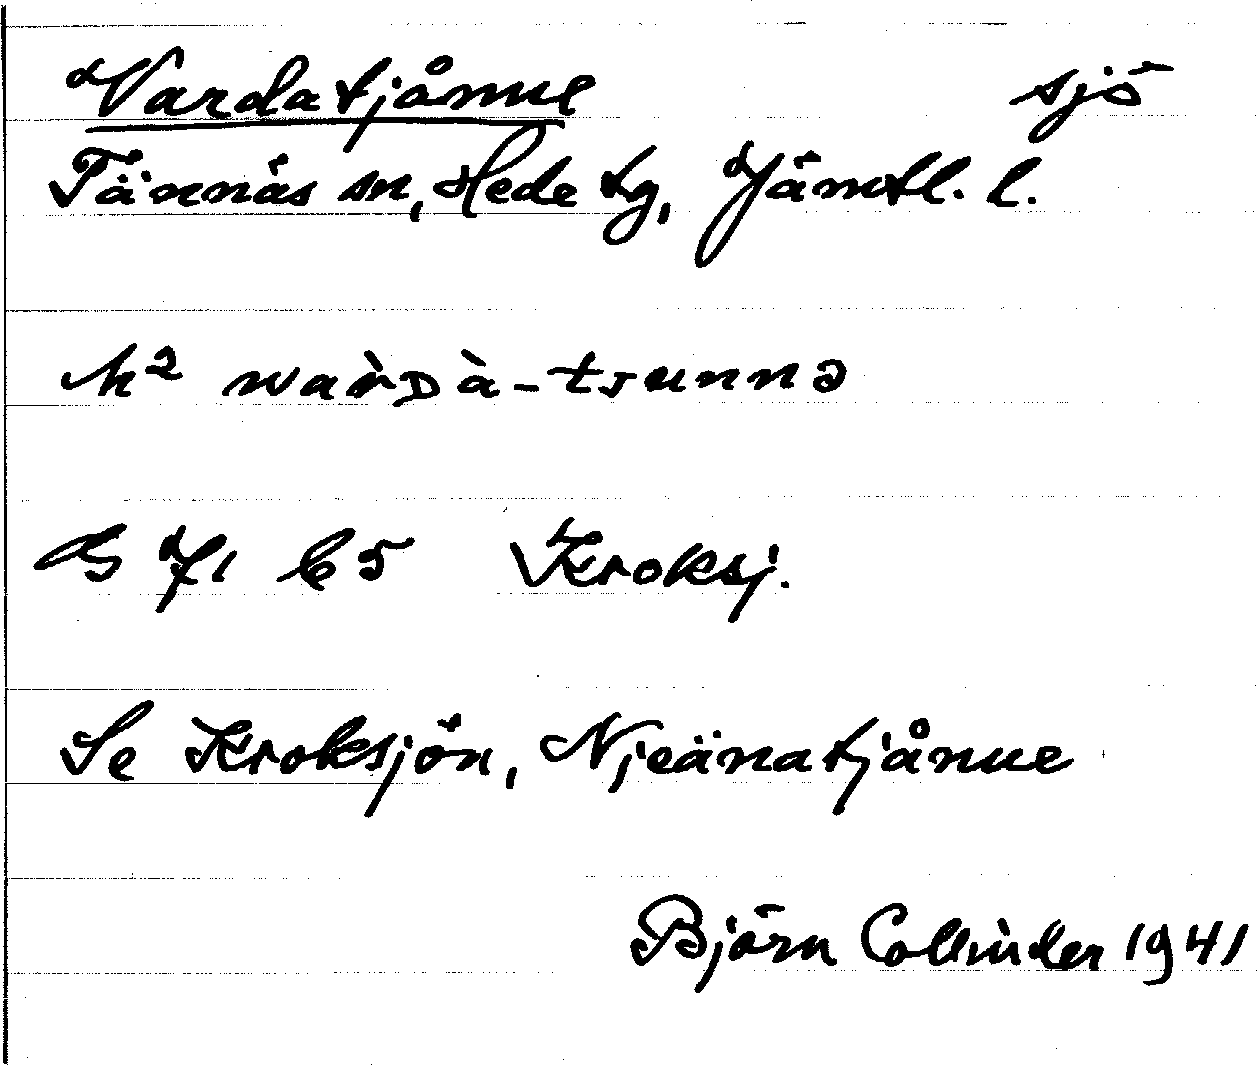 Vardatjånne sjö
Tännäs sn, Hede tg, Jämtl. l.
h² wàrᴅà-tsunnə
G 71 b 5 Kroksj.
Se Kroksjön, Njeänatjånne
Björn Collinder 1941